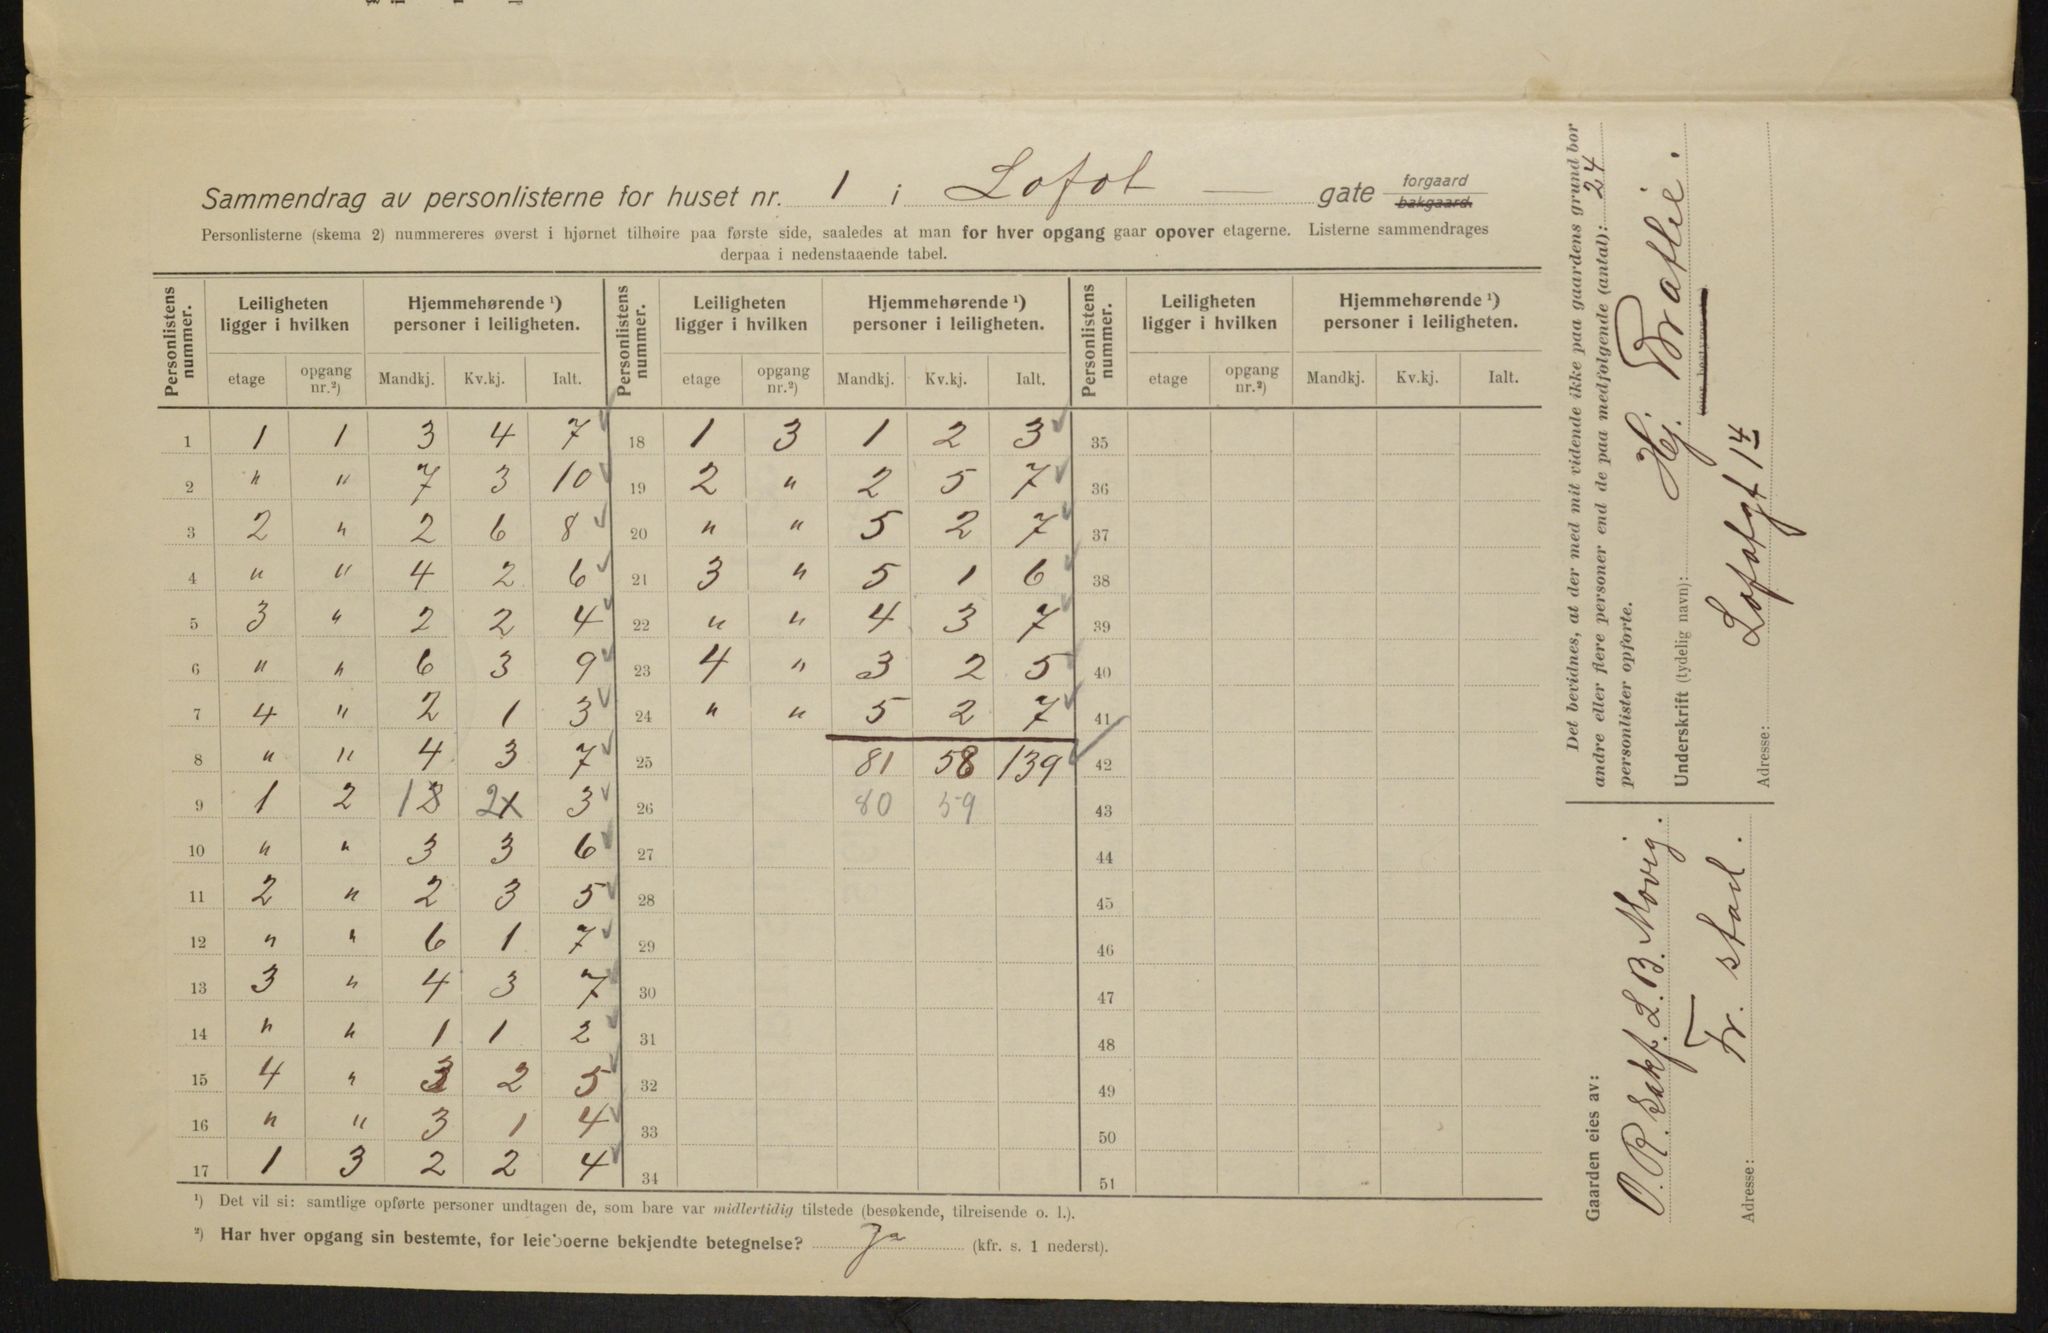 Sammendrag av personlisterne for huset nr. 1 i Lofot — gate forgaard bakgaard.
Personlisterne (skema 2) nummereres øverst i hjørnet tilhøire paa første side, saaledes at man for hver opgang gaar opover etagerne. Listerne sammendrages
derpaa i nedenstaaende tabel.
Personlistens nummer. Leiligheten ligger i hvilken Hjemmehørende ¹) personer i leiligheten. Personlistens nummer. Leiligheten ligger i hvilken Hjemmehørende ¹) personer i leiligheten. Personlistens nummer. Leiligheten ligger i hvilken Hjemmehørende ¹) personer i leiligheten.
etage opgang nr.²) Mandkj. Kv.kj. Ialt. etage opgang nr.²) Mandkj. Kv.kj. Ialt. etage opgang nr.²) Mandkj. Kv.kj. Ialt.
1 1 1 3 4 7 18 1 3 1 2 3 35
2 " " 7 3 10 19 2 " 2 5 7 36
3 2 " 2 6 8 20 " " 5 2 7 37
4 " " 4 2 6 21 3 " 5 1 6 38
5 3 " 2 2 4 22 " " 4 3 7 39
6 " " 6 3 9 23 4 " 3 2 5 40
7 4 " 2 1 3 24 " " 5 2 7 41
8 " " 4 3 7 25 81 58 139 42
9 1 2 1 2 2 1 3 26 80 59 43
10 " " 3 3 6 27 44
11 2 " 2 3 5 28 45
12 " " 6 1 7 29 46
13 3 " 4 3 7 30 47
14 " " 1 1 2 31 48
15 4 " 3 2 5 32 49
16 " " 3 1 4 33 50
17 1 3 2 2 4 34 51
¹) Det vil si: samtlige opførte personer undtagen de, som bare var midlertidig tilstede (besøkende, tilreisende o. l.).
²) Har hver opgang sin bestemte, for leieboerne bekjendte betegnelse? Ja (kfr. s. 1 nederst).
Det bevidnes, at der med mit vidende ikke paa gaardens grund bor
andre eller flere personer end de paa medfølgende (antal): 24
personlister opførte.
Hj. Bratlie.
Underskrift (tydelig navn):
Lofotgt 14
Adresse:
Gaarden eies av:
O.R. Sakf. L. B. Movig.
Fr. stad.
Adresse: